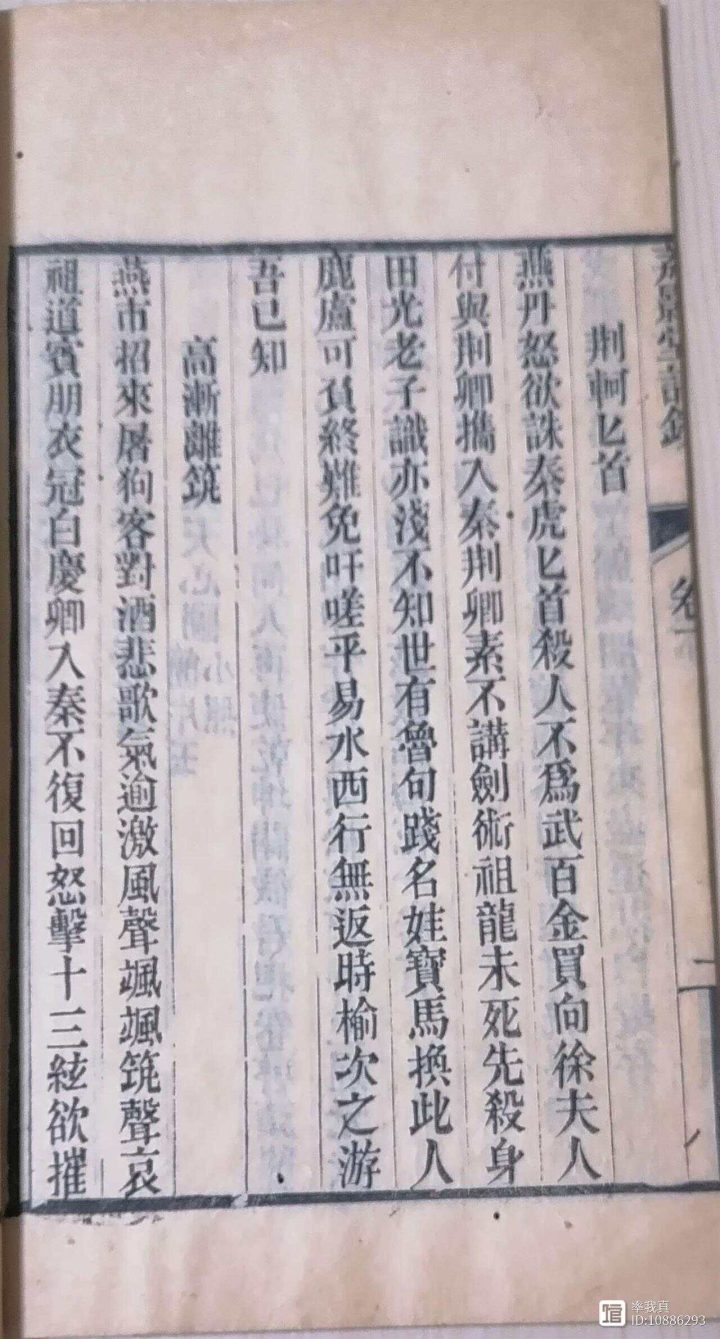 荆軻匕首
燕丹怒欲誅秦虎匕首殺人不爲武百金買向徐夫人
付與荆卿攜入秦荆卿素不講劍術祖龍未死先殺身
田光老子識亦淺不知世有魯句踐名姓寶馬換此人
鹿盧可負終難免吁嗟乎易水西行無返時榆次之游
吾已知
高漸離筑
燕市招來屠狗客對酒悲歌氣逾激風聲颯颯筑聲哀
祖道賓朋衣冠白慶卿入秦不復回怒擊十三絃欲摧
卷下
二
率我真
ID:10886293